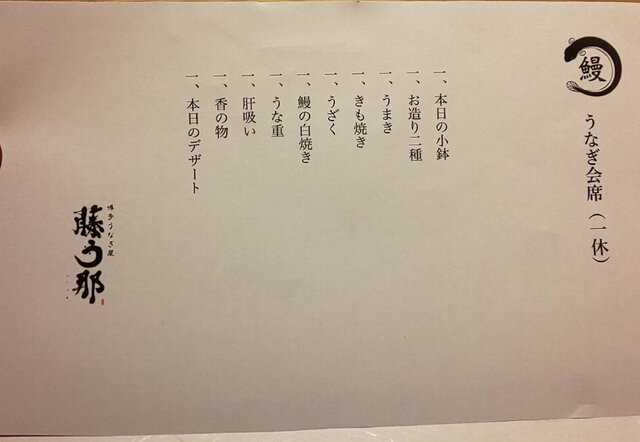 鰻
うなぎ会席（一休）
一、本日の小鉢
一、お造り二種
一、うまき
一、きも焼き
一、うざく
一、鰻の白焼き
一、うな重
一、肝吸い
一、香の物
一、本日のデザート
博多うなぎ屋
藤う那